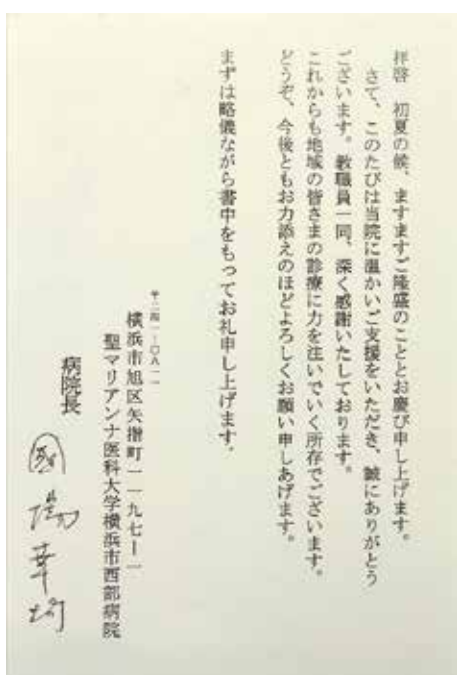 拝啓　初夏の候、ますますご隆盛のこととお慶び申し上げます。
さて、このたびは当院に温かいご支援をいただき、誠にありがとう
ございます。教職員一同、深く感謝いたしております。
これからも地域の皆さまの診療に力を注いでいく所存でございます。
どうぞ、今後ともお力添えのほどよろしくお願い申しあげます。
まずは略儀ながら書中をもってお礼申し上げます。
〒二四一‐〇八一一
横浜市旭区矢指町一一九七ー一
聖マリアンナ医科大学横浜市西部病院
病院長